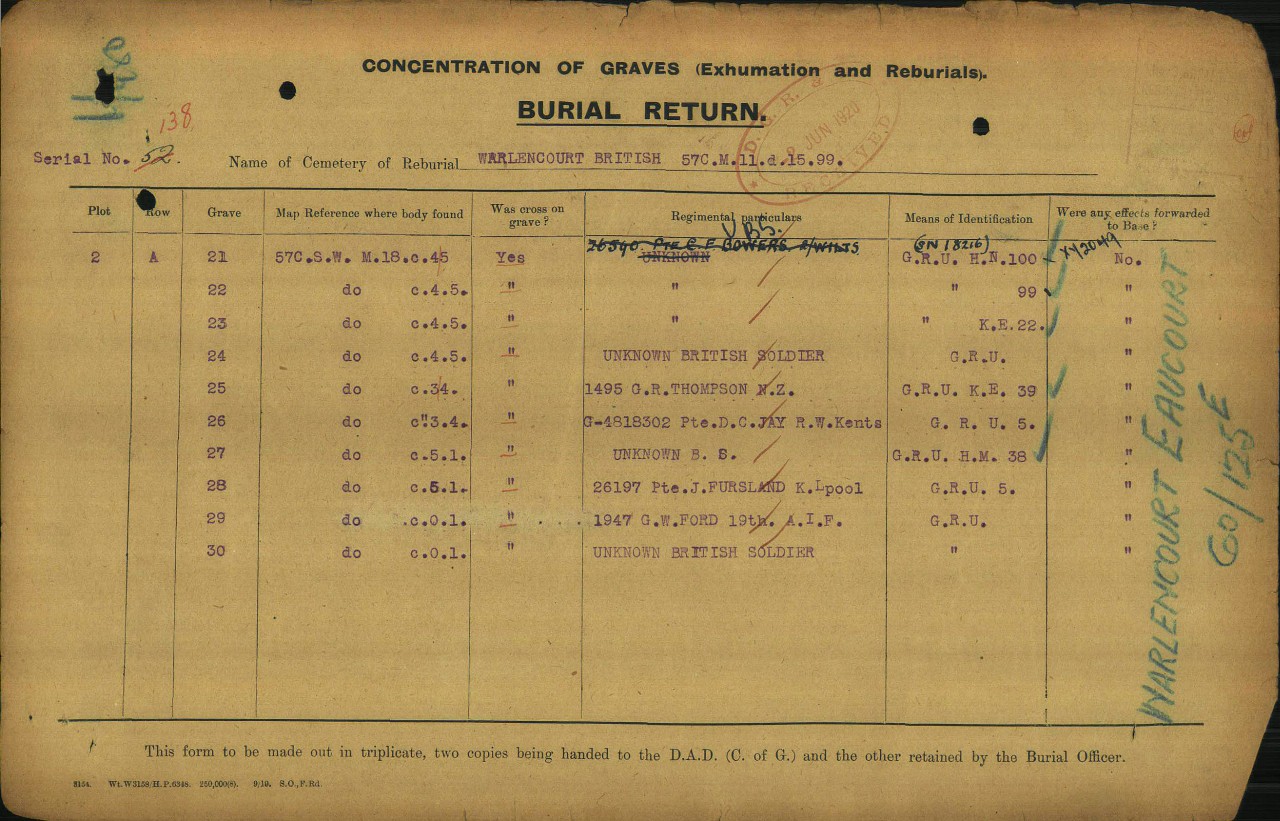 CONCENTRATION OF GRAVES (Exhumation and Reburials).
BURIAL RETURN.
D. G. R. & E.
JUN 1920
RECEIVED
138
Serial No. 52.
Name of Cemetery of Reburial WARLENCOURT BRITISH 57C.M.11.d.15.99.
Plot Row Grave Map Reference where body found Was cross on grave? Regimental particulars Means of Identification Were any effects forwarded to Base?
U.B.S.
26540. Pte E. F. BOWERS. 2/WILTS (SN 18216) XY2049
2 A 21 57C.S.W. M.18.c.45 Yes UNKNOWN G.R.U. H.N.100 No.
22 do c.4.5. " " " 99 "
23 do c.4.5. " " " K.E.22. "
24 do c.4.5. " UNKNOWN BRITISH SOLDIER G.R.U. "
25 do c.34. " 1495 G.R.THOMPSON N.Z. G.R.U. K.E. 39 "
26 do c"3.4. " G-4818302 Pte.D.C.JAY R.W.Kents G. R. U. 5. "
27 do c.5.1. " UNKNOWN B. S. G.R.U. H.M. 38 "
28 do c.5.1. " 26197 Pte.J.FURSLAND K.Lpool G.R.U. 5. "
29 do .c.0.1. " . . . . 1947 G.W.FORD 19th. A.I.F. G.R.U. "
30 do c.0.1. " UNKNOWN BRITISH SOLDIER " "
WARLENCOURT EAUCOURT
60/125E
This form to be made out in triplicate, two copies being handed to the D.A.D. (C. of G.) and the other retained by the Burial Officer.
8154. Wt.W3158/H.P.6348. 250,000(8). 9/19. S.O.,F.Rd.